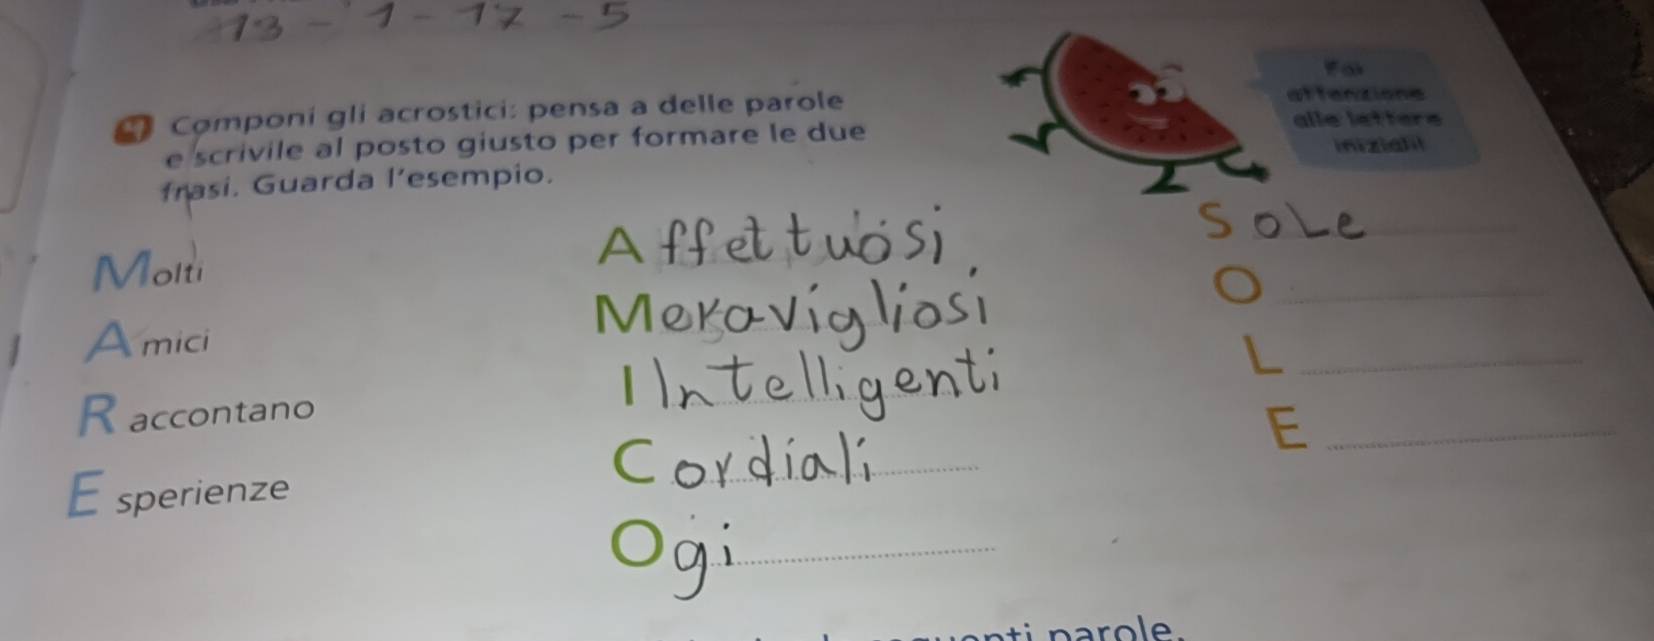 13 - 1 - 17 - 5
Componi gli acrostici: pensa a delle parole
e scrivile al posto giusto per formare le due
frasi. Guarda l'esempio.
Fai
attenzione
alle lettere
iniziali!
Molti
Amici
Raccontano
Esperienze
Affettuosi
Meravigliosi
IIntelligenti
Cordiali
Ogi
Sole
O
L
E
parole.